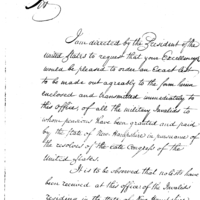 I am directed by the President of the
United States to request that your Excellency
would be pleased to order an Exact list
to be made out agreably to the form here
enclosed and transmitted immediately to
this office, of all the military Invalids to
whom pensions have been granted and paid
by the State of New Hampshire in pursuance of
the resolves of the late Congress of the
United States.
It is to be observed that no lists have
been received at this office of the Invalids
residing in the State of New Hampshire